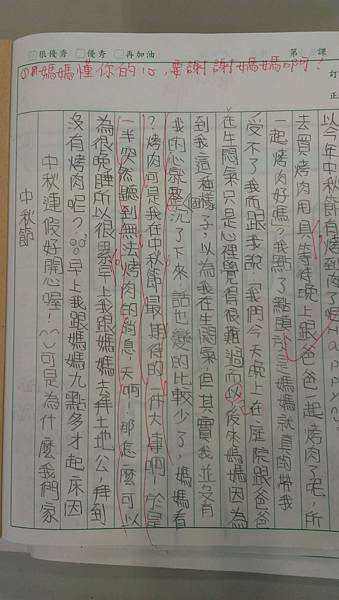 □很優秀 □優秀 □再加油
第 課
訂
正
媽媽懂你的心，要謝謝媽媽啊！
中秋節
中秋連假好開心喔！^^可是為什麼我們家
沒有烤肉吧？早上我跟媽媽九點多才起床因
為很晚睡所以很累早上我跟媽媽去拜土地公，拜到
一半突然聽到無法烤肉的消息，天啊！那怎麼可以
？烤肉可是我在中秋節最期待的一件大事啊，於是
我的心就整個沉了下來 話也變的比較少了 媽媽看
到我這種樣子，以為我在生悶氣，但其實我並沒有
在生悶氣只是心裡覺得很難過而以，後來媽媽因為
受不了我而跟我說「我們今天晚上在庭院跟爸爸
一起烤肉好嗎？」我點了點頭於是媽媽就真的帶我
去買烤肉用具等待晚上跟爸爸一起烤肉了吧，所
以今年中秋節有烤到肉了吧Happy